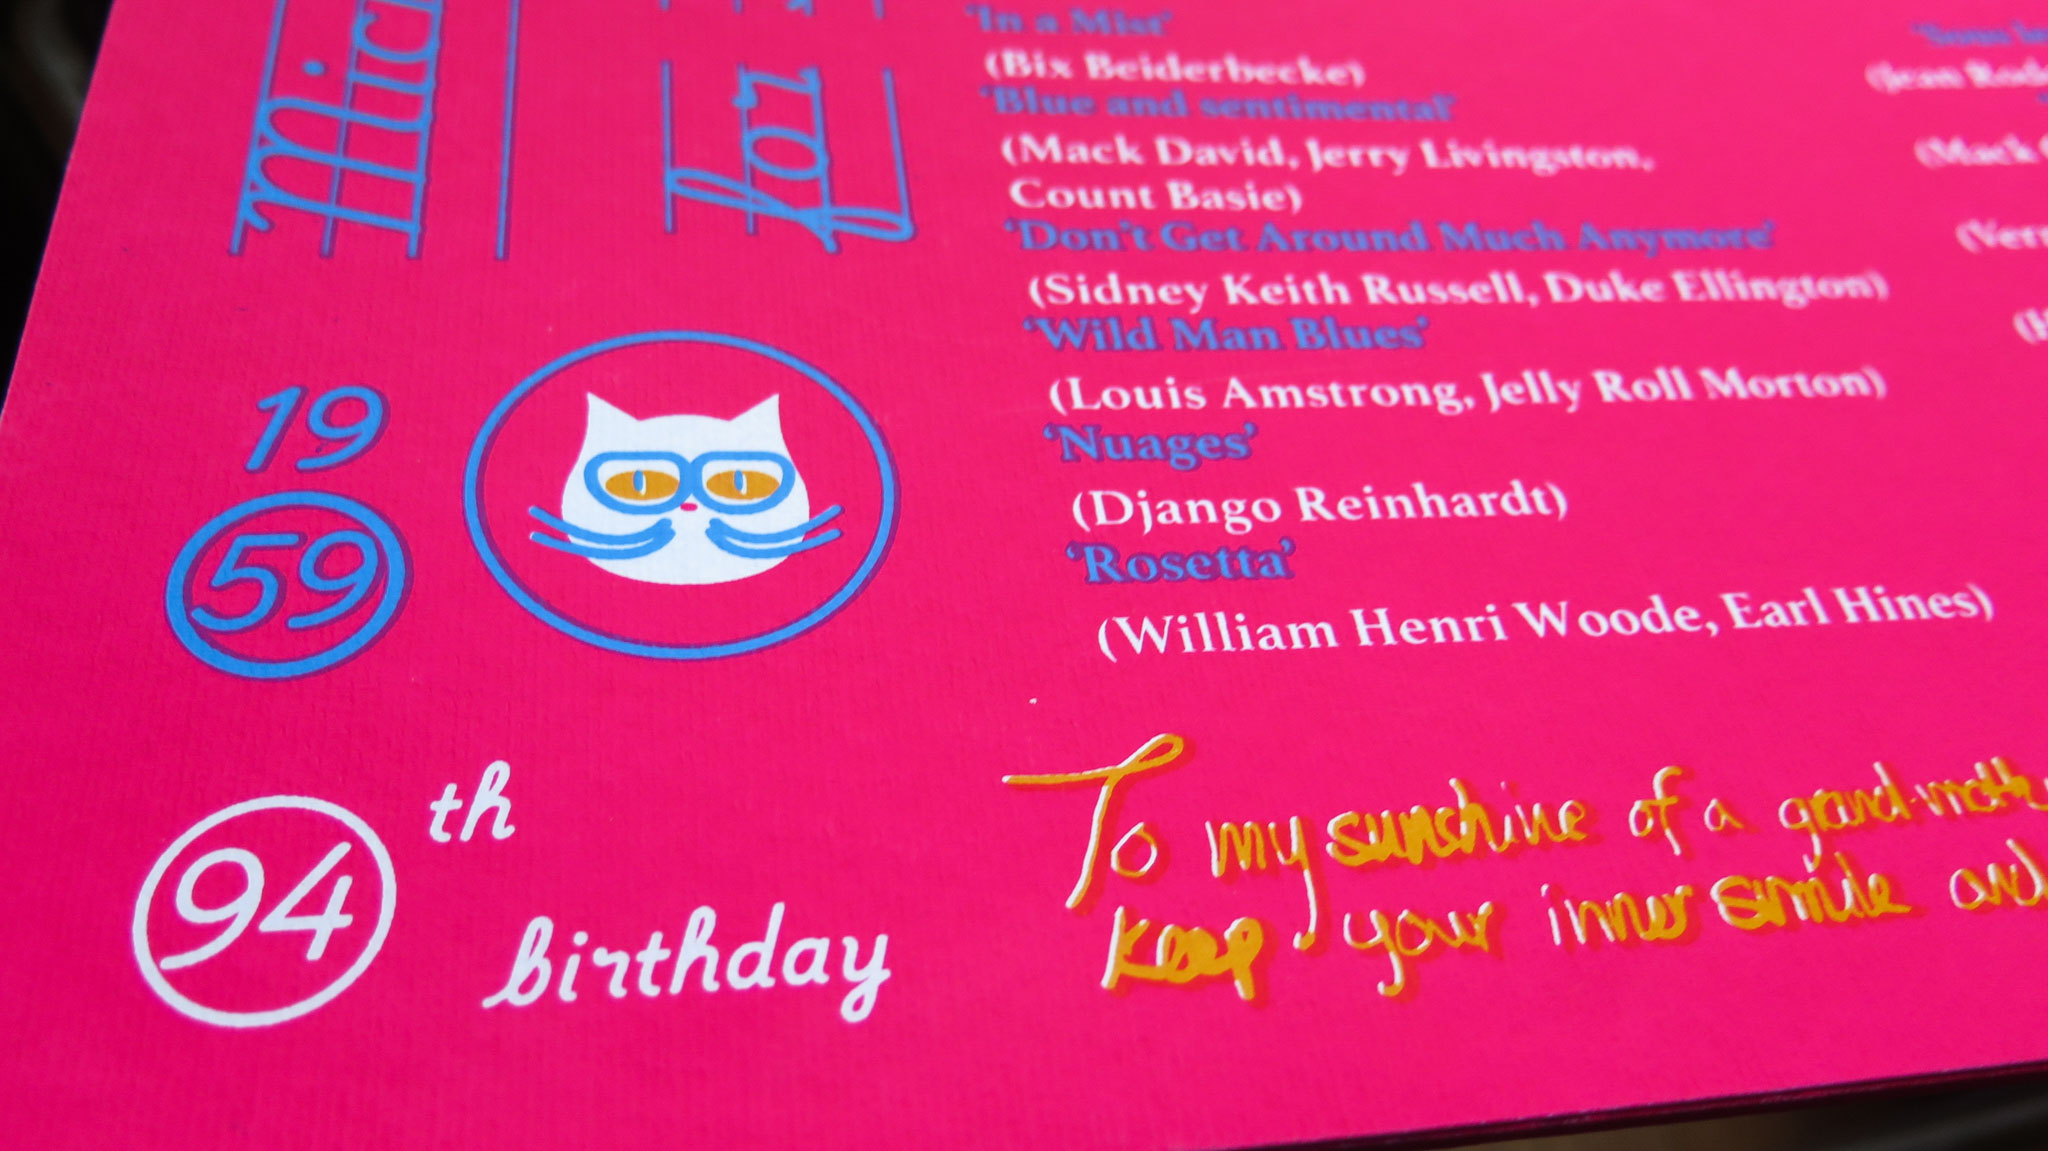 for
19
59
94 th
birthday
'In a Mist'
(Bix Beiderbecke)
'Blue and sentimental'
(Mack David, Jerry Livingston,
Count Basie)
'Don't Get Around Much Anymore'
(Sidney Keith Russell, Duke Ellington)
'Wild Man Blues'
(Louis Amstrong, Jelly Roll Morton)
'Nuages'
(Django Reinhardt)
'Rosetta'
(William Henri Woode, Earl Hines)
(Jean
(Mack
To my sunshine of a
keep your inner smile and